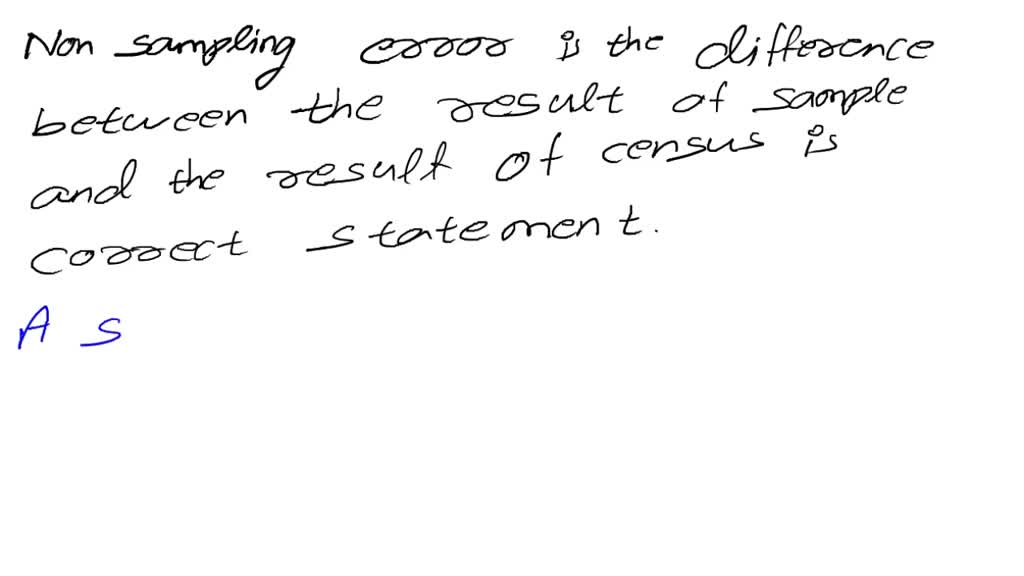 Non sampling error is the difference
between the result of sample
and the result of census is
correct statement.
A s